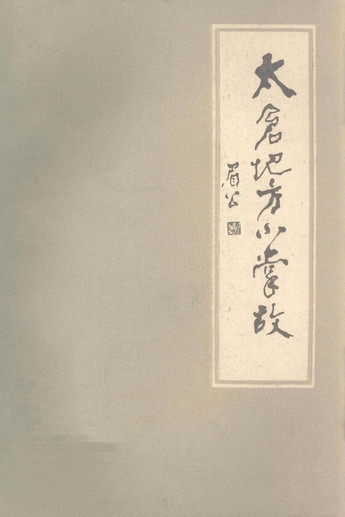 太倉地方小掌故
眉公